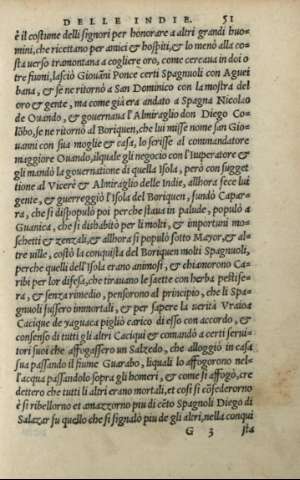 DELLE INDIE. 51
è il costume delli signori per honorare a altri grandi huo-
mini, che ricettano per amici & hospiti, & lo menò alla co-
sta uerso tramontana a cogliere oro, come cercana in doi o
tre fiumi, lasciò Giouãni Ponce certi Spagnuoli con Aguei
bana, & se ne ritornò a San Dominico con la mostra del
oro & gente, ma come già era andato a Spagna Nicolao
de Ouando, & gouernaua l'Almiraglio don Diego Co-
lõbo, se ne ritornò al Boriquen, che lui misse nome san Gio-
uanni con sua moglie & casa, lo scrisse al commandatore
maggiore Ouando, ilquale gli negocio con l'Imperatore &
gli mandò la gouernatione di quella Isola, però con sugget
tione al Vicerè & Almiraglio delle Indie, allhora fece lui
gente, & guerreggiò l'Isola del Boriquen, fundò Capar-
ra, che si dispopulò poi perche staua in palude, populò a
Guanica, che si dishabitò per li molti, & importuni mo-
schetti & zenzali, & allhora si populò sotto Mayor, & al-
tre uille, costò la conquista del Boriquen molti Spagnuoli,
perche quelli dell'Isola erano animosi, & chiamorono Ca-
ribi per lor difesa, che tirauano le saette con herba pestife-
ra, & senza rimedio, pensorono al principio, che li Spa-
gnuoli fussero immortali, & per sapere la uerità Vraioa
Cacique de yaguaca pigliò carico di esso con accordo, &
consenso di tutti gli altri Caciqui & comandò a certi serui-
tori suoi che affogassero un Salzedo, che alloggiò in casa
sua passando il fiume Guarabo, liquali lo affogorono nel-
l'acqua passandolo sopra gli homeri, & come si affogò, cre
dettero che tutti li altri erano mortali, et cosi si cõfederorno
& si ribellorno et amazzorno piu di cẽto Spagnoli Diego di
Salazar fu quello che si signalò piu de gli altri, nella conqui
G 3 sta